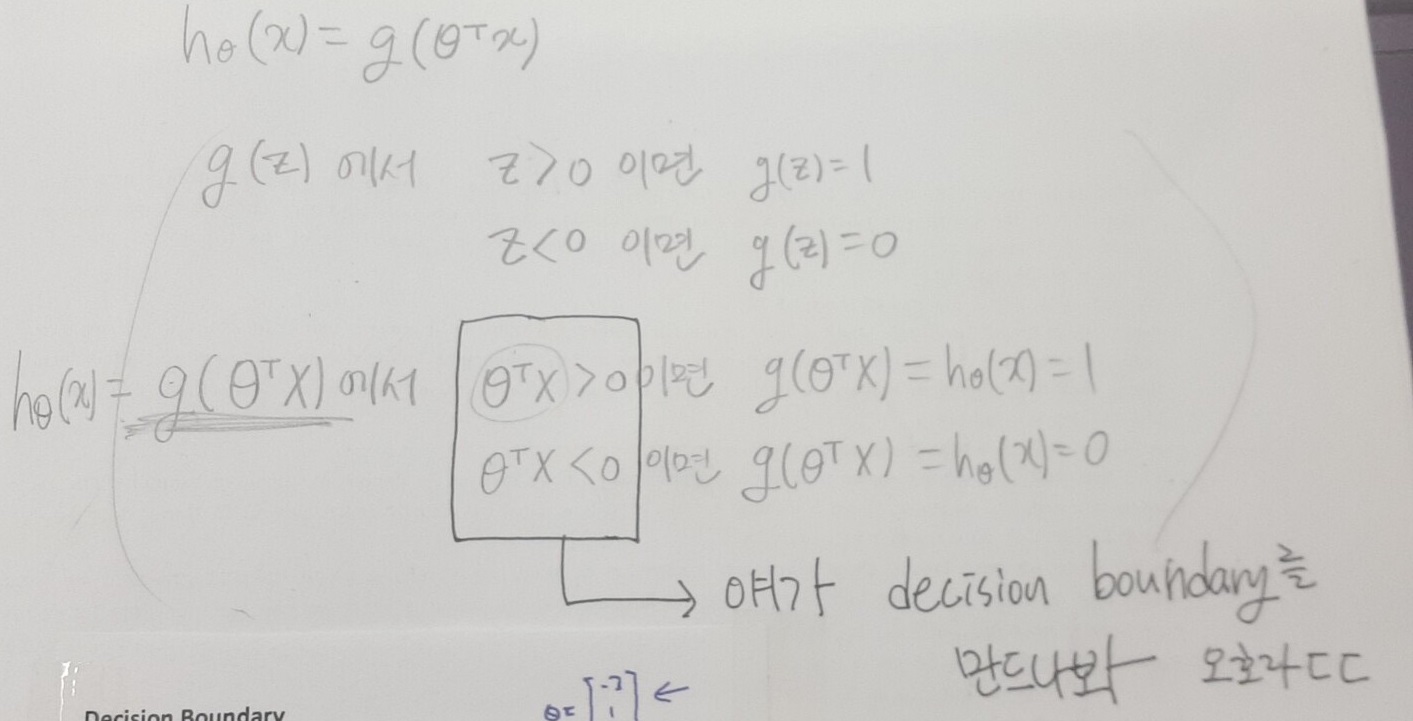 hθ(x) = g(θᵀx)
g(z) 에서 z>0 이면 g(z)=1
z<0 이면 g(z)=0
hθ(x) = g(θᵀX) 에서 θᵀX >0 이면 g(θᵀX) = hθ(x) = 1
θᵀX <0 이면 g(θᵀX) = hθ(x) = 0
→ 얘가 decision boundary를
만드나봐 오호라ㄷㄷ
Decision Boundary
θ= ←